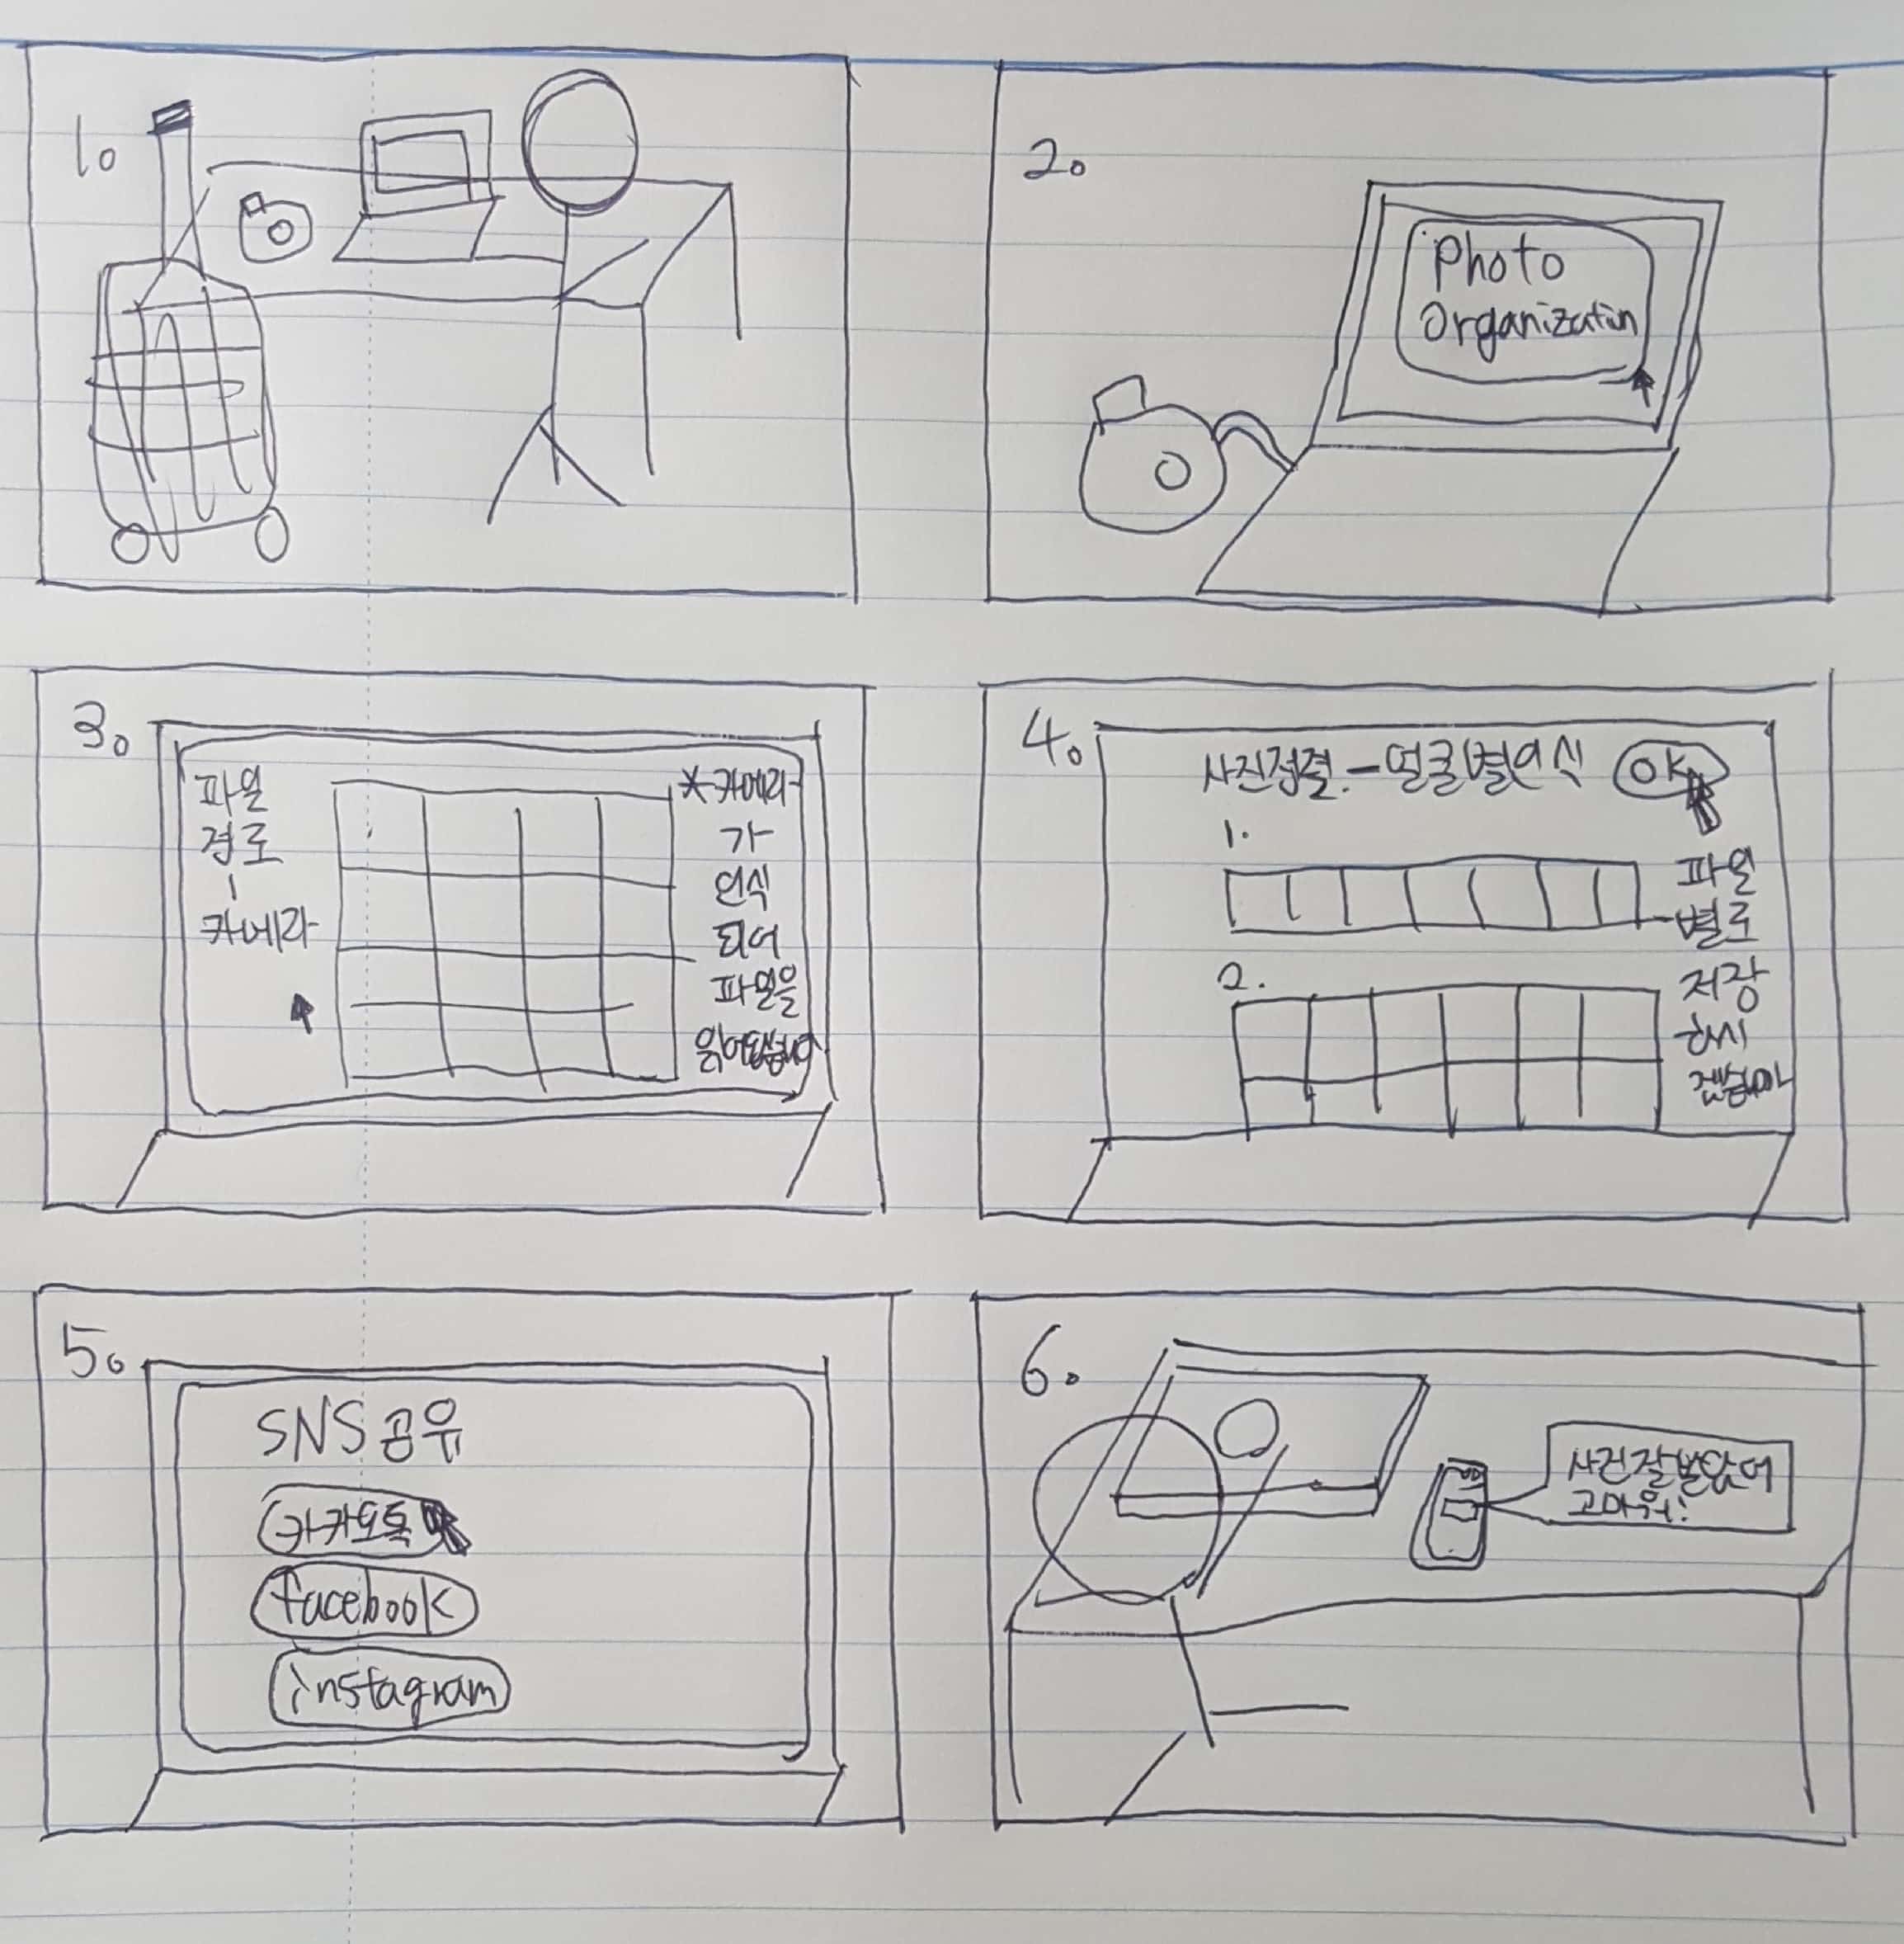 1.
2.
Photo
Organizatin
3.
파일
경로
-
카메라
*카메라
가
인식
되어
파일을
4.
사진점검. - 얼굴별인식
OK
1.
2.
파일
별로
저장
하시
겠습니까
5.
SNS 공유
카카오톡
facebook
instagram
6.
사진 잘 받았어
고마워!